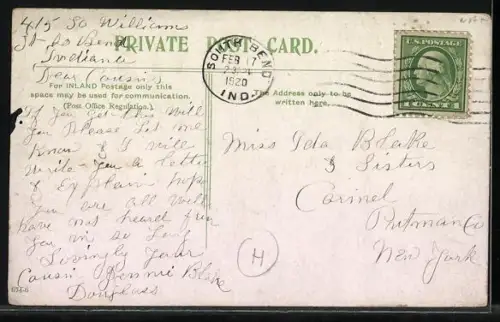 415 So Williams
St So Bend
Indiana
Dear Cousins
PRIVATE POST CARD.
For INLAND Postage only this
space may be used for communication.
(Post Office Regulation.)
The Address only to be
written here.
SOUTH BEND
FEB 17
1920
IND.
U.S. POSTAGE
1 CENT 1
If you get this Will
you Please let me
Know & I will
write you a letter
& Explain hope
you are all well
have not heard from
you in so long
Lovingly your
Cousin Bennie Blake
Douglass
Miss Ida Blake
& Sisters
Carmel
Putman Co
New York
H